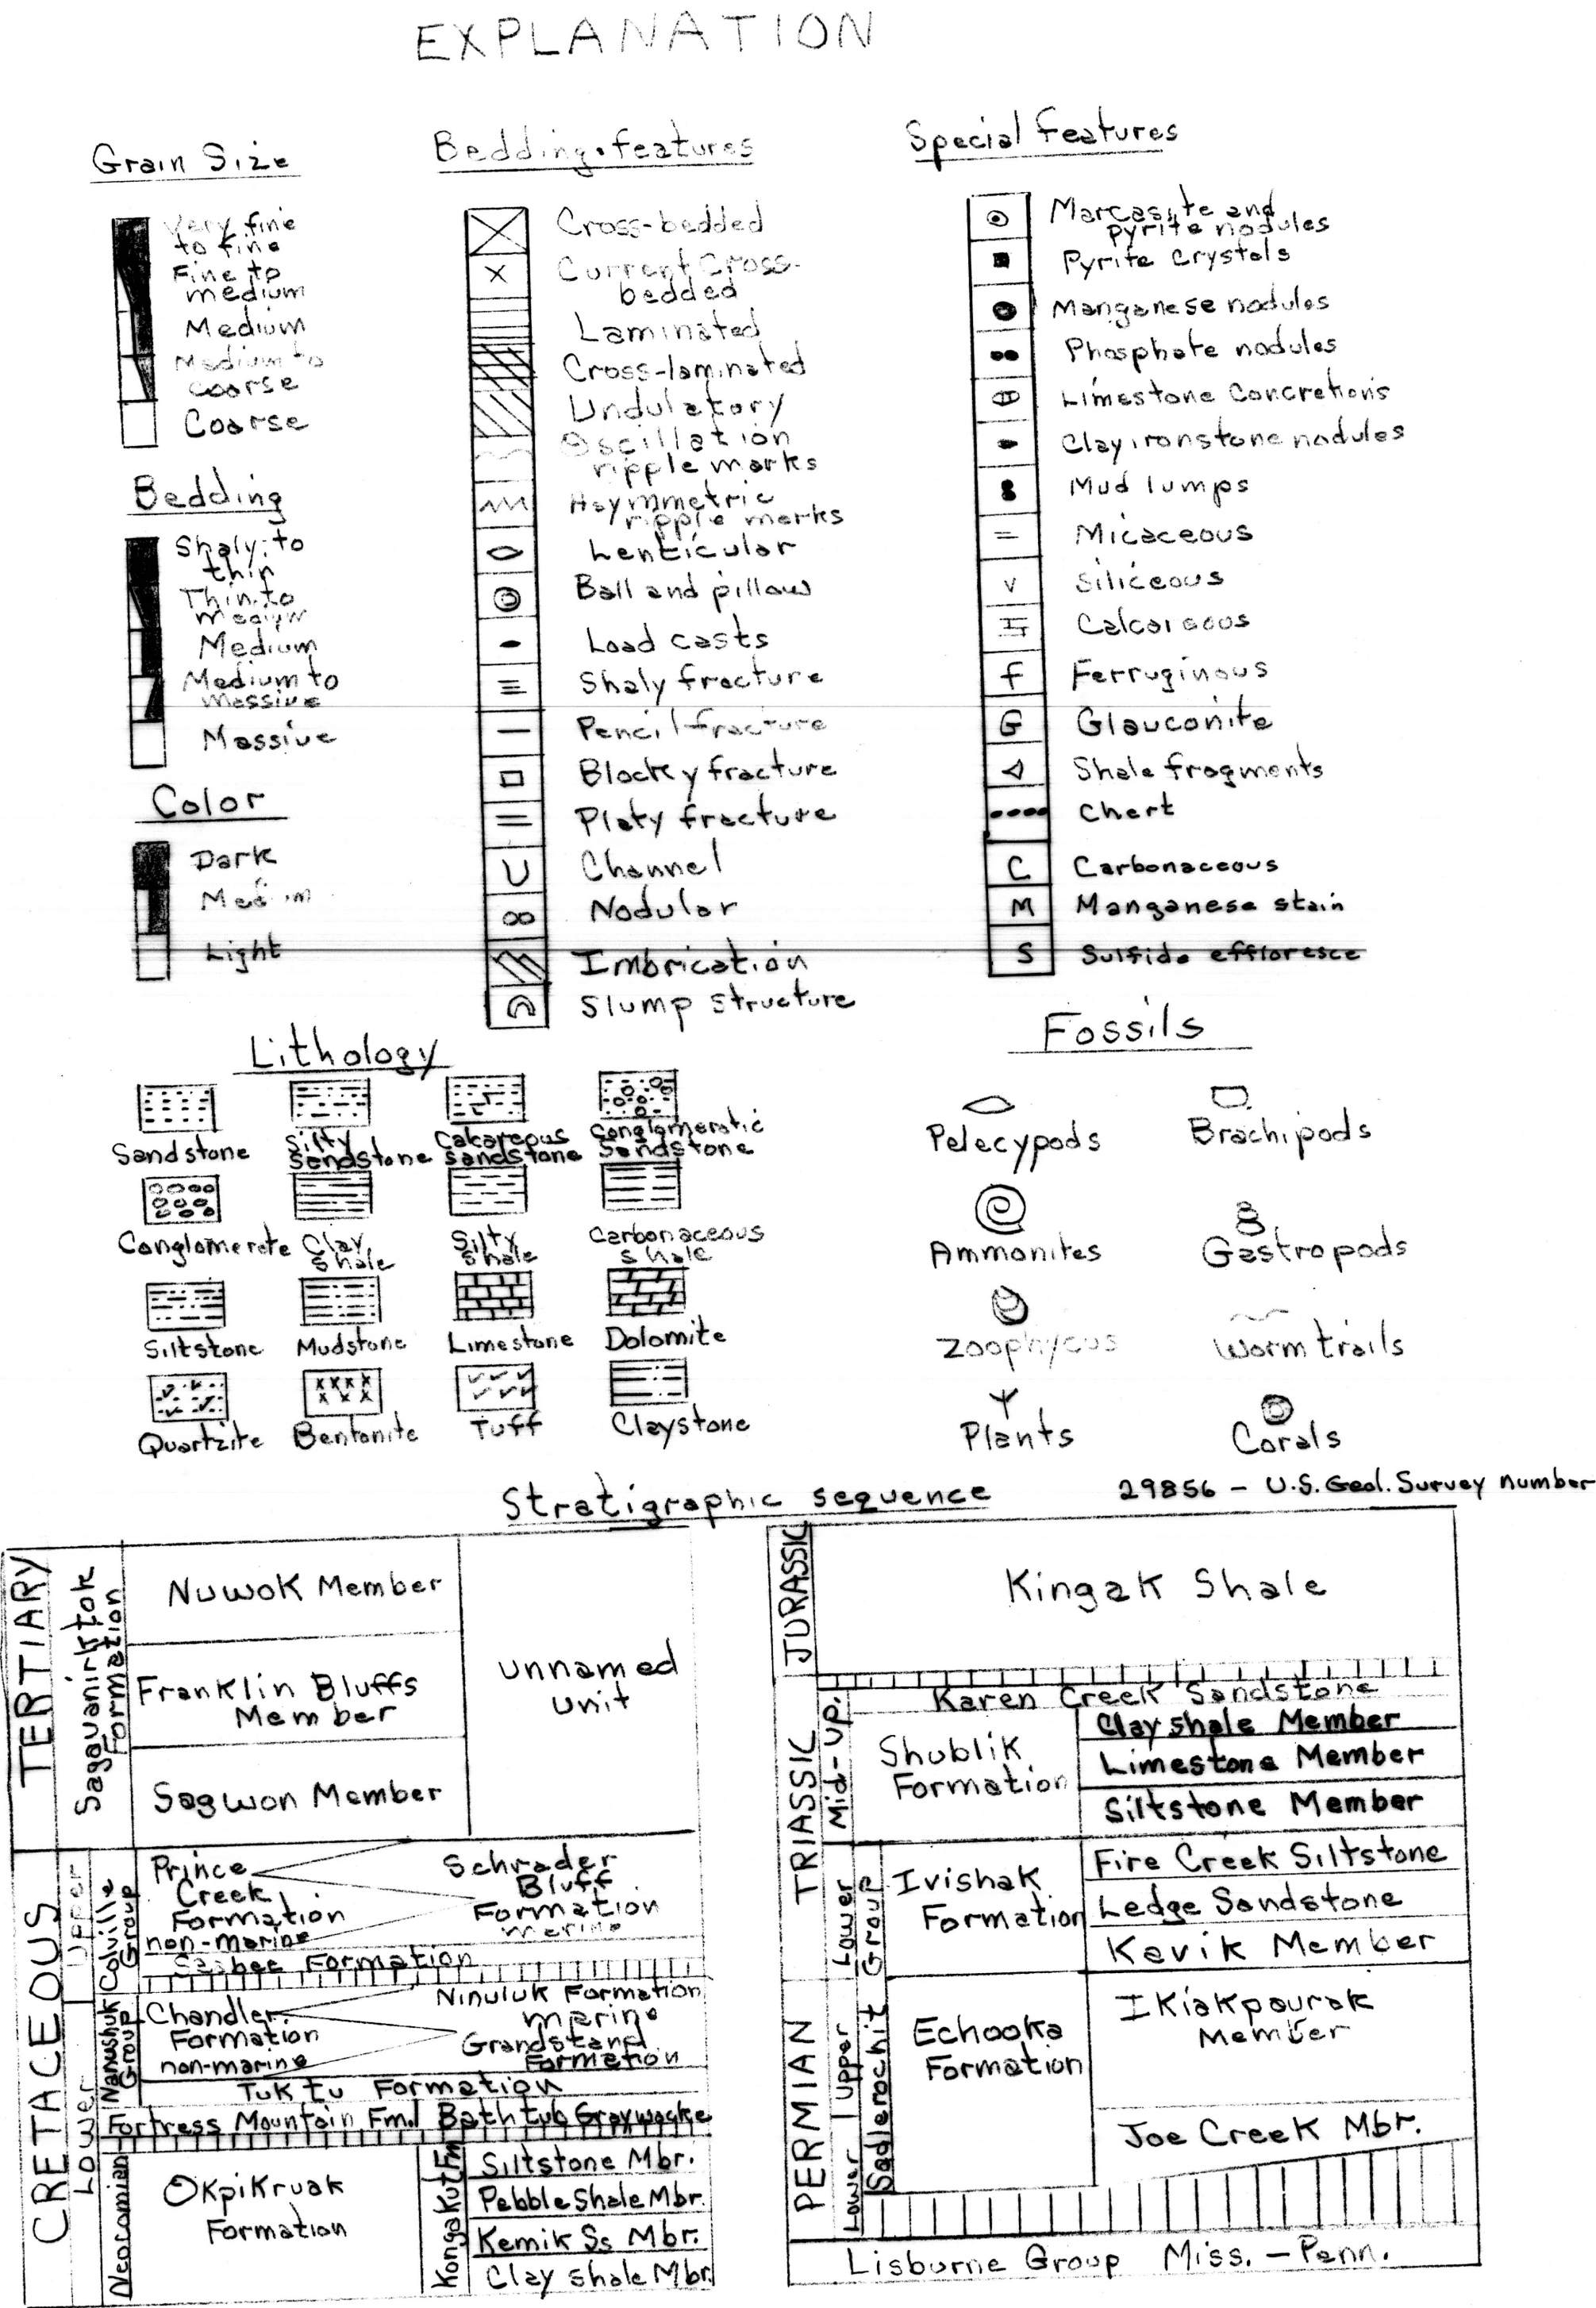 EXPLANATION
Grain Size
Very fine
to fine
Fine to
medium
Medium
Medium to
coarse
Coarse
Bedding
Shaly to
thin
Thin to
medium
Medium
Medium to
massive
Massive
Color
Dark
Medium
Light
Bedding features
Cross-bedded
Current Cross-
bedded
Laminated
Cross-laminated
Undulatory
Oscillation
ripple marks
Asymmetric
ripple marks
Lenticular
Ball and pillow
Load casts
Shaly fracture
Pencil fracture
Blocky fracture
Platy fracture
Channel
Nodular
Imbrication
Slump structure
Special Features
Marcasite and
pyrite nodules
Pyrite crystals
Manganese nodules
Phosphate nodules
Limestone Concretions
Clay ironstone nodules
Mud lumps
Micaceous
v Siliceous
Calcareous
f Ferruginous
G Glauconite
Shale fragments
Chert
C Carbonaceous
M Manganese stain
S Sulfide effloresce
Lithology
Sandstone
Silty
Sandstone
Calcareous
Sandstone
Conglomeratic
Sandstone
Conglomerate
Clay
Shale
Silty
Shale
Carbonaceous
Shale
Siltstone
Mudstone
Limestone
Dolomite
Quartzite
Bentonite
Tuff
Claystone
Fossils
Pelecypods
Brachipods
Ammonites
Gastropods
Zoophycus
Worm trails
Plants
Corals
29856 – U.S. Geol. Survey number
Stratigraphic sequence
TERTIARY
Sagavanirktok
Formation
Nuwok Member
Franklin Bluffs
Member
Sagwon Member
unnamed
unit
CRETACEOUS
Upper
Colville
Group
Prince
Creek
Formation
non-marine
Schrader
Bluff
Formation
marine
Seabee Formation
Lower
Nanushuk
Group
Chandler
Formation
non-marine
Ninuluk Formation
marine
Grandstand
Formation
Tuktu Formation
Fortress Mountain Fm. Bathtub Graywacke
Neocomian
Okpikruak
Formation
Kongakut Fm
Siltstone Mbr.
Pebble Shale Mbr.
Kemik Ss Mbr.
Clay shale Mbr.
JURASSIC
Kingak Shale
TRIASSIC
Mid-Up.
Karen Creek Sandstone
Shublik
Formation
Clay shale Member
Limestone Member
Siltstone Member
Lower
Sadlerochit Group
Ivishak
Formation
Fire Creek Siltstone
Ledge Sandstone
Kavik Member
PERMIAN
Lower Upper
Echooka
Formation
Ikiakpaurak
Member
Joe Creek Mbr.
Lisburne Group Miss. – Penn.